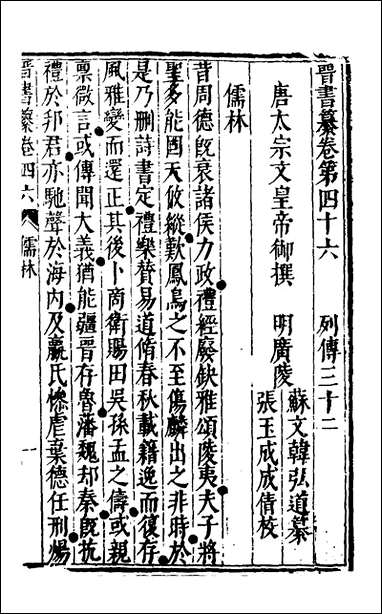 晉書纂卷第四十六　列傳三十二
唐太宗文皇帝御撰　明廣陵
蘇文韓弘道纂
張玉成成倩校
儒林
昔周德旣衰諸侯力政禮經廢缺雅頌陵夷夫子將
聖多能固天攸縱歎鳳鳥之不至傷麟出之非時於
是乃刪詩書定禮樂贊易道脩春秋載籍逸而復存
風雅變而還正其後卜商衛賜田吳孫孟之儔或親
稟微言或傳聞大義猶能彊晉存魯藩魏却秦旣抗
禮於邦君亦馳聲於海內及嬴氏慘虐棄德任刑煬
晉書纂卷四六　儒林　一